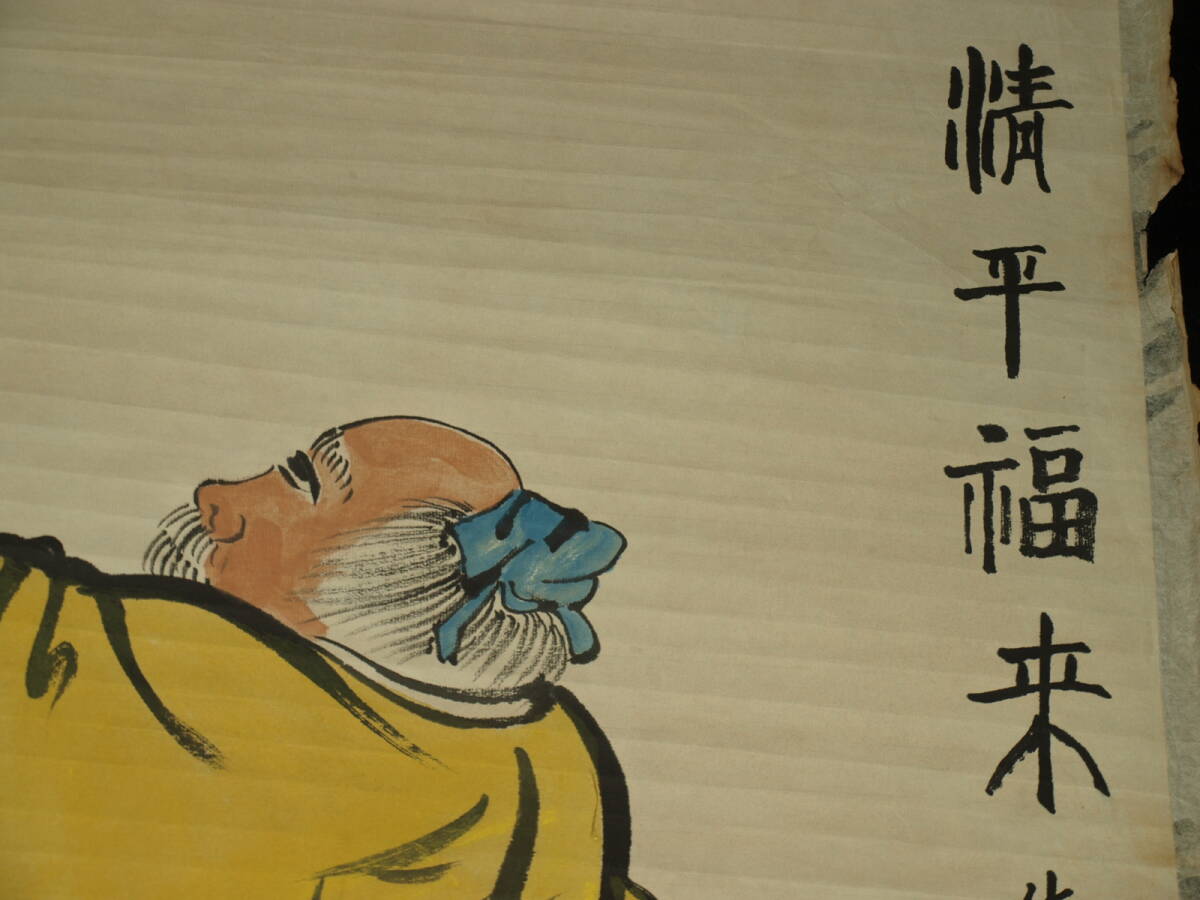 清平福来